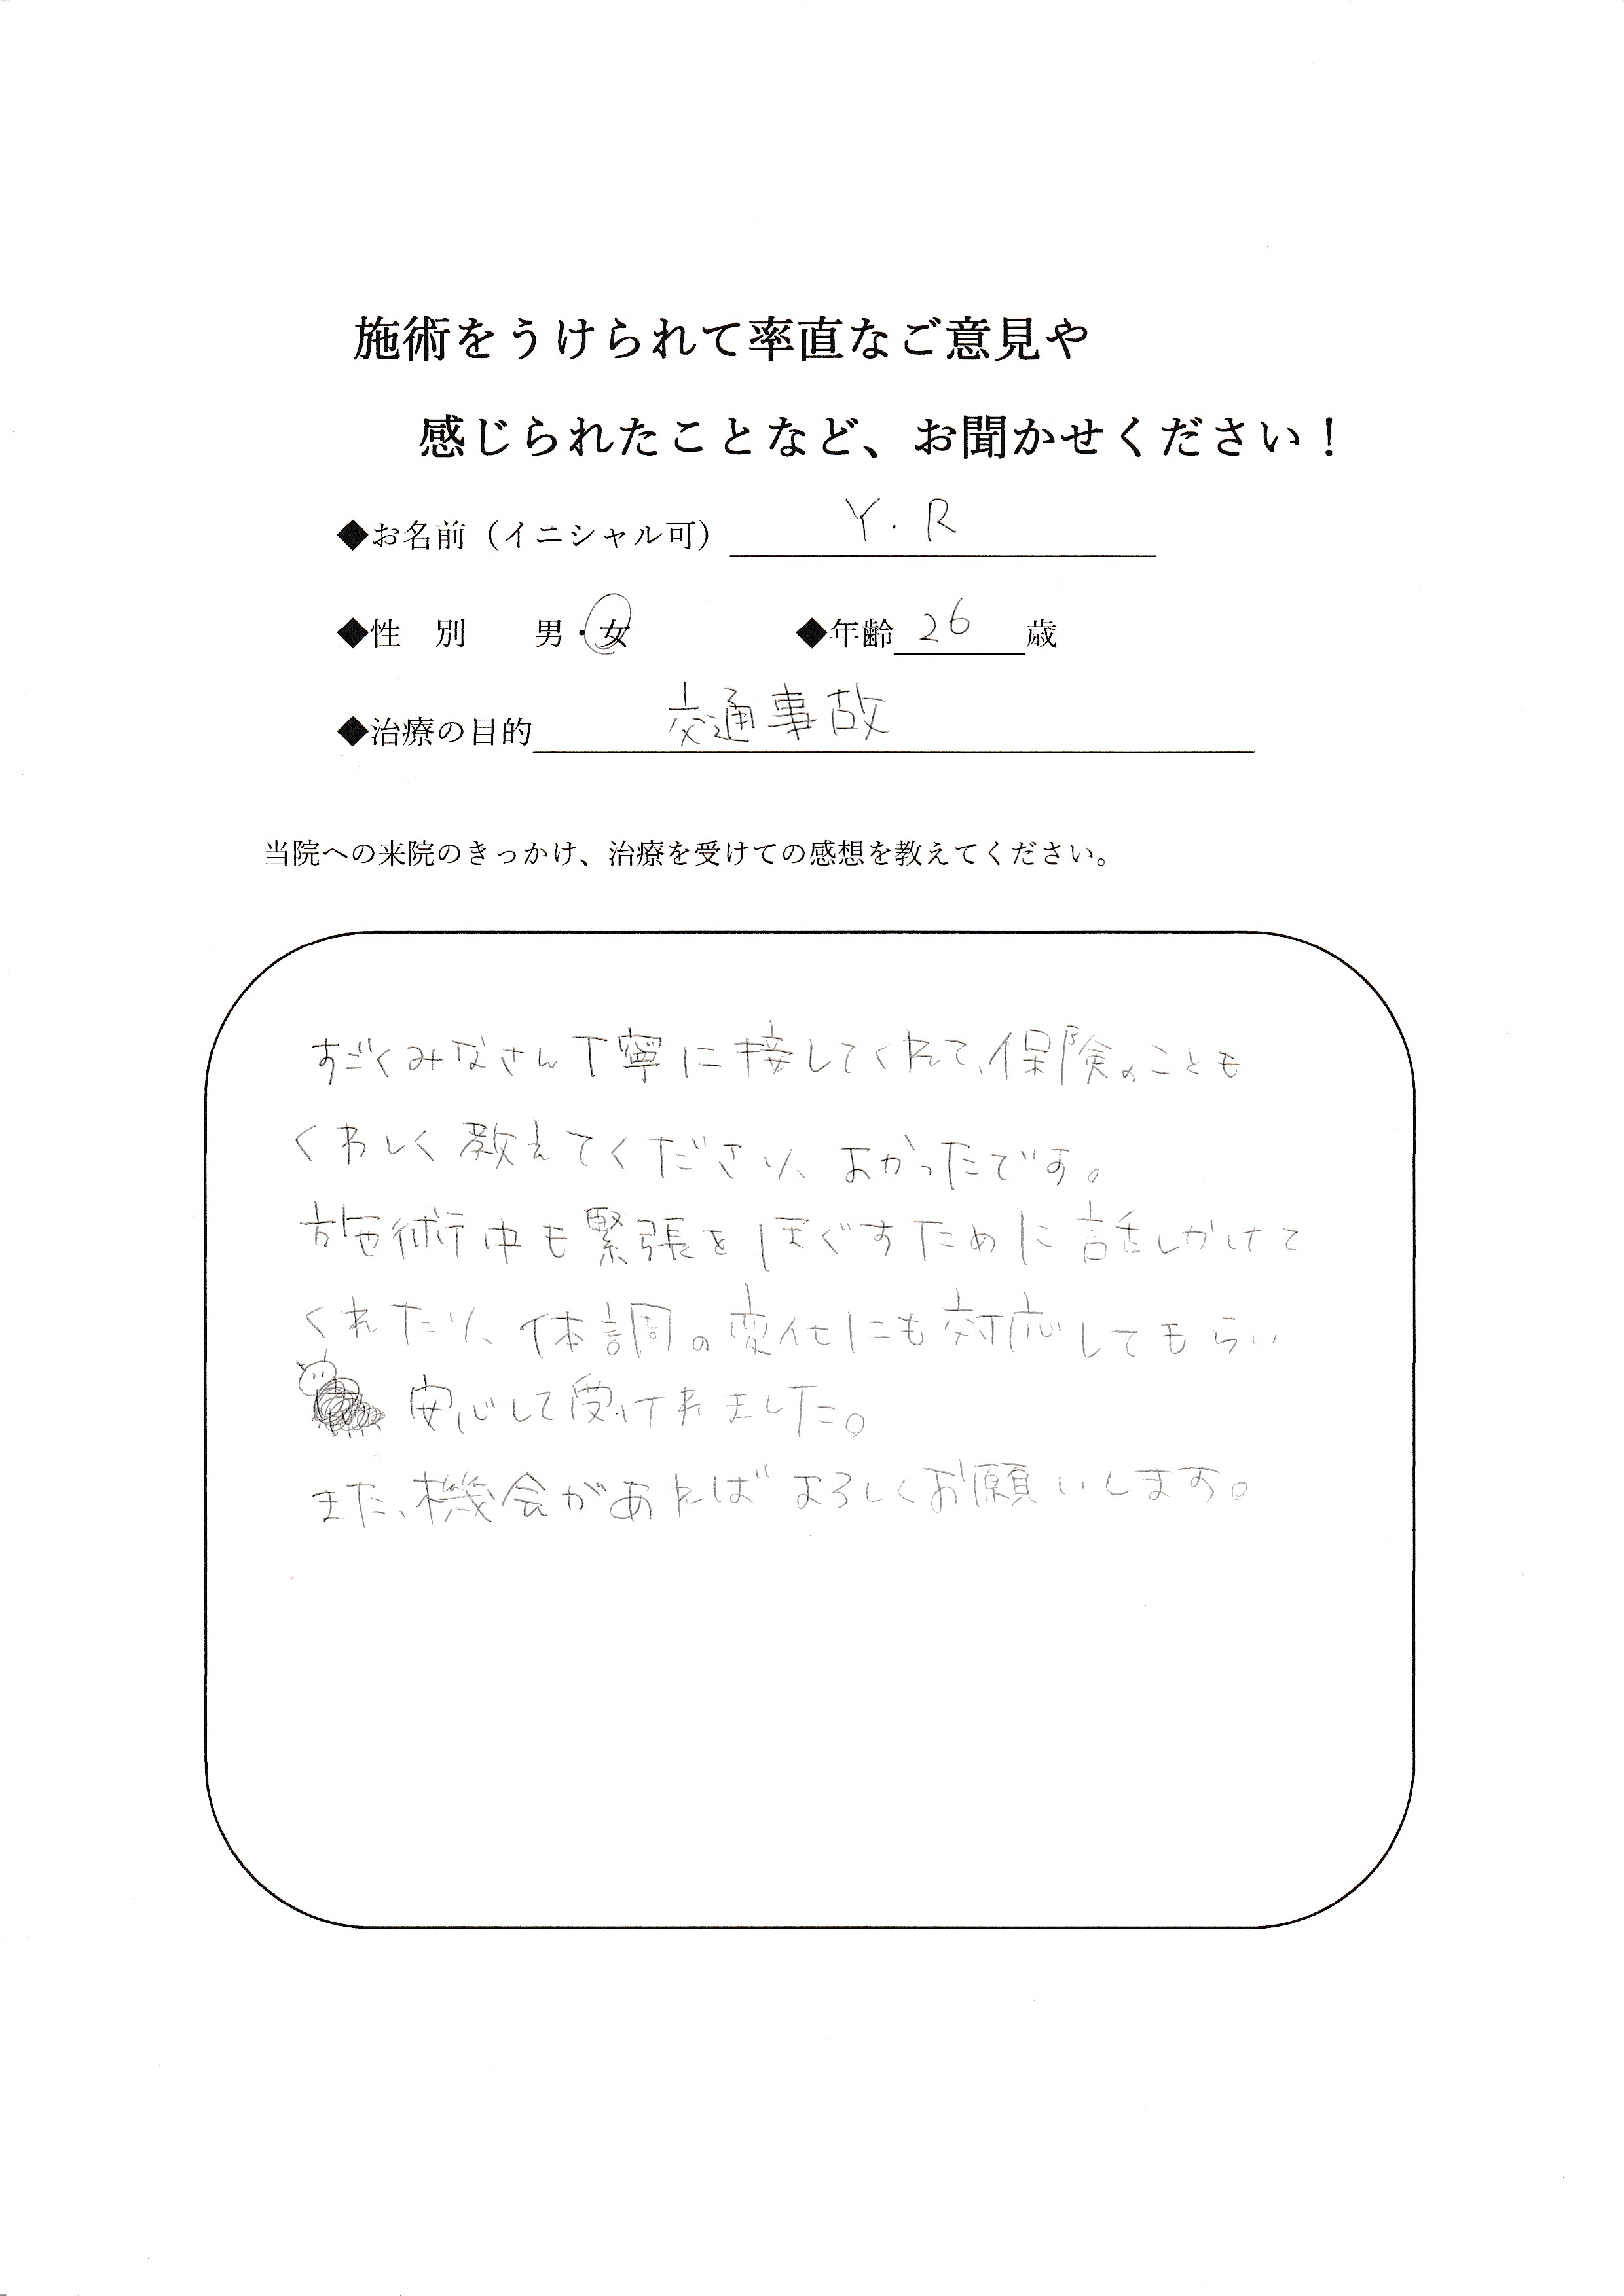 施術をうけられて率直なご意見や
感じられたことなど、お聞かせください！
◆お名前（イニシャル可） Y.R
◆性　別　　男・女　　◆年齢 26 歳
◆治療の目的 交通事故
当院への来院のきっかけ、治療を受けての感想を教えてください。
すごくみなさん丁寧に接してくれて、保険のことも
くわしく教えてくださり、よかったです。
施術中も緊張をほぐすために話しかけて
くれたり、体調の変化にも対応してもらい
安心して受けれました。
また、機会があればよろしくお願いします。